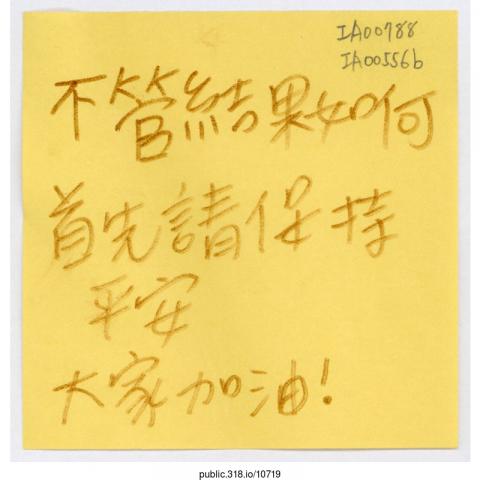 IA00788
IA00556b
不管結果如何
首先請保持
平安
大家加油！
public.318.io/10719